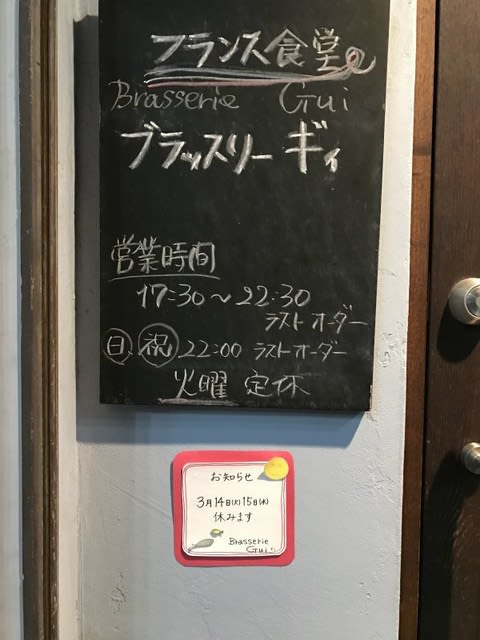 フランス食堂
Brasserie Gui
ブラッスリー ギィ
営業時間
17:30～22:30
ラストオーダー
日、祝 22:00 ラストオーダー
火曜 定休
お知らせ
3月14日(火)15日(水)
休みます
Brasserie
Gui